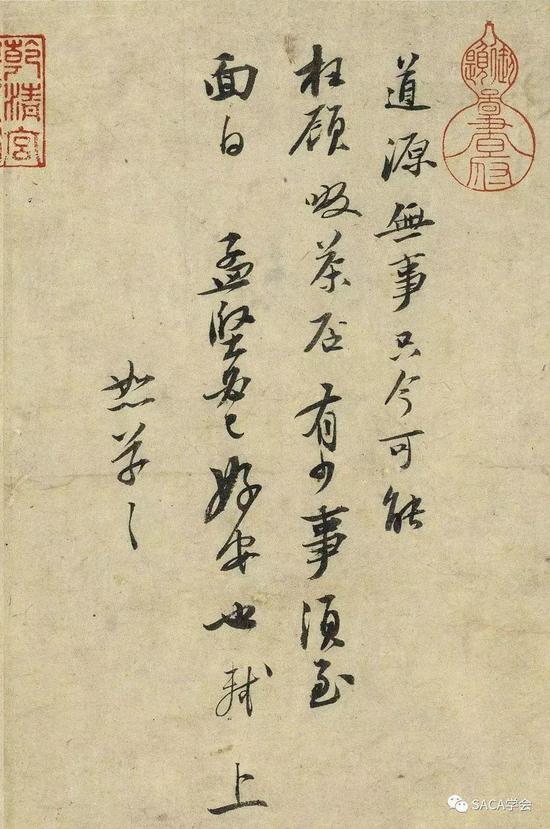 道源無事只今可能
枉顧啜茶否有少事須至
面白 孟堅必已好安也軾 上
恕草々
乾清宮
SACA学会